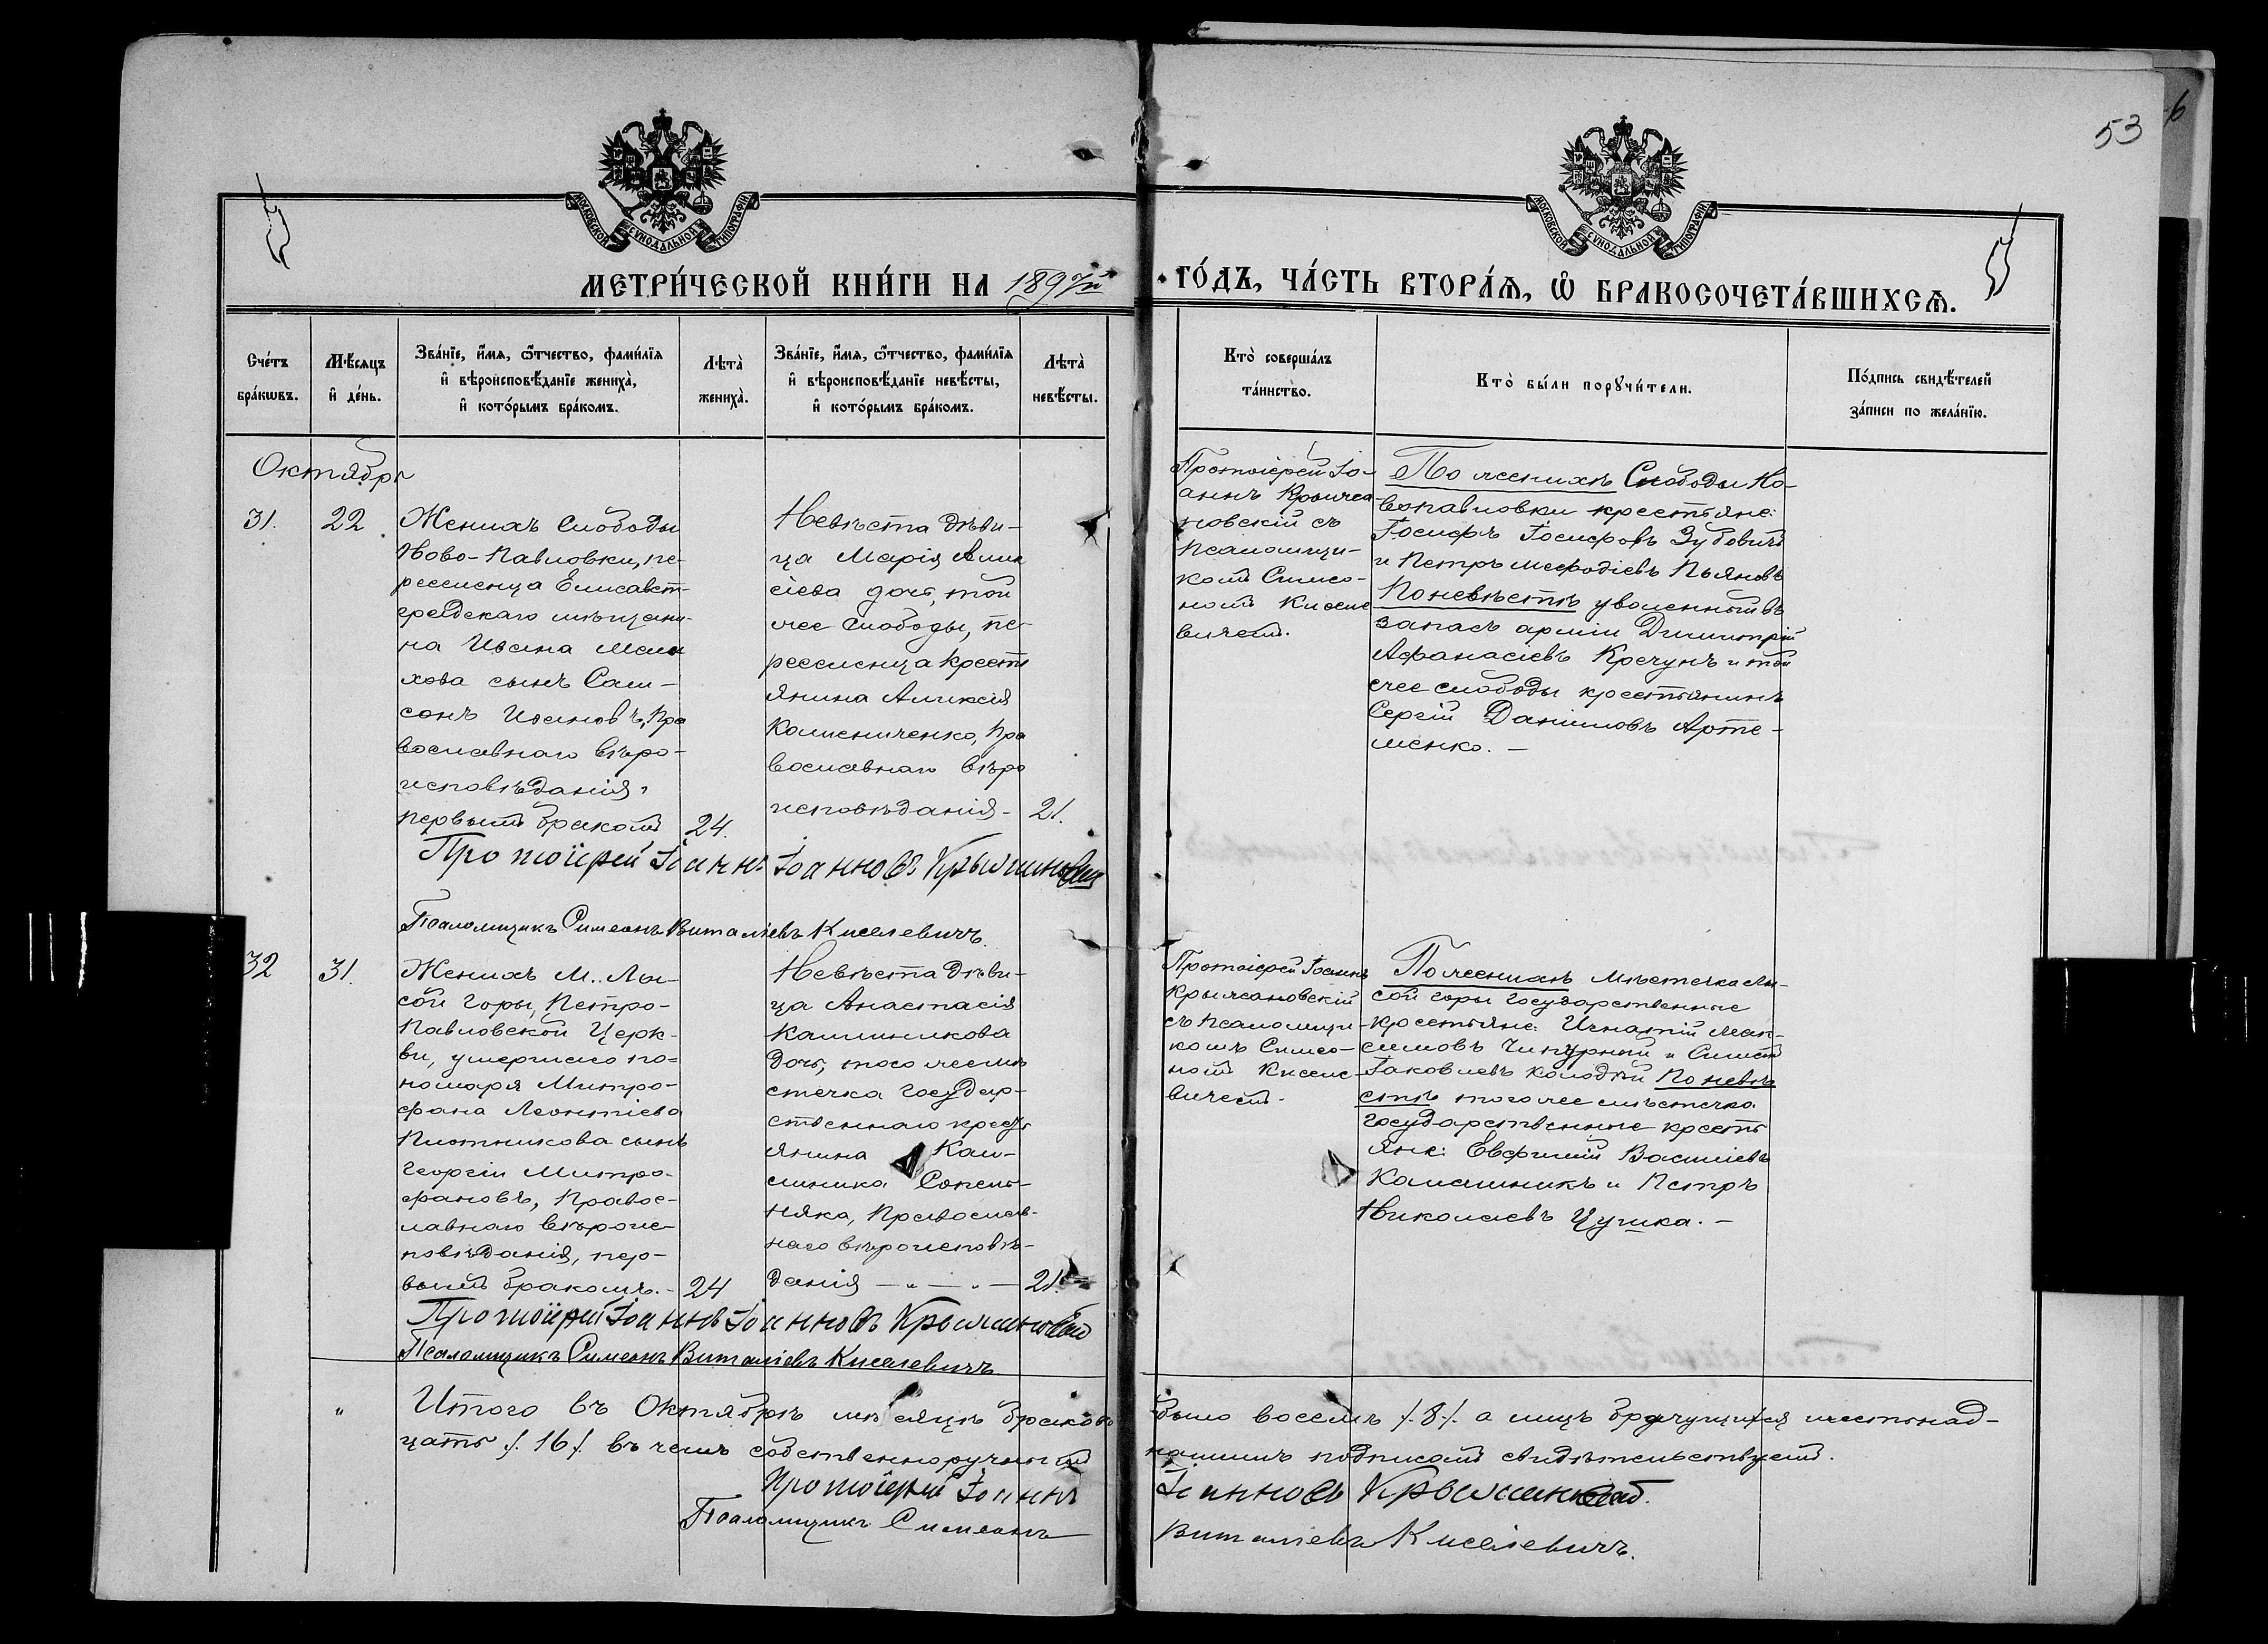 53
6
МОСКОВСКОЙ СѴНОДАЛЬНОЙ ТИПОГРАФІИ
МОСКОВСКОЙ СѴНОДАЛЬНОЙ ТИПОГРАФІИ
МЕТРИ́ЧЕСКОЙ КНИ́ГИ НА 1897й
ГО́ДЪ, ЧА́СТЬ ВТОРА́Ѧ, Ѽ БРАКОСОЧЕТА́ВШИХСѦ.
Сче́тъ
бра́кѡвъ.
Мѣ́сяцъ
и҆ де́нь.
Зва́нїе, и҆́мѧ, ѻ҆́тчество, фами́лїѧ
и҆ вѣроисповѣ́данїе жениха̀,
и҆ кото́рымъ бра́комъ.
Лѣта̀
жениха̀.
Зва́нїе, и҆́мѧ, ѻ҆́тчество, фами́лїѧ
и҆ вѣроисповѣ́данїе невѣ́сты,
и҆ кото́рымъ бра́комъ.
Лѣта̀
невѣ́сты.
Кто̀ соверша́лъ
та́инство.
Кто̀ бы́ли порꙋчи́тели.
По́дпись свидѣ́телей
за́писи по жела́нїю.
Октябрь
31.
22
Женихъ слободы
Ново-Павловки, пе-
реселенца Елисавет-
градскаго мѣщани-
на Ивана
хова сынъ Сам-
сонъ Ивановъ, Пра
вославнаго вѣро-
исповѣданія,
первымъ бракомъ
24.
Невѣста дѣви-
ца Марія Алек
сіева дочь, той
же слободы, пе-
реселенца кресть
янина Алексія
Каменченко, Пра
вославнаго вѣро
исповѣданія -
21.
Протоіерей Іо-
аннъ Крыжа
новскій съ
псаломщи-
комъ Симео-
номъ Кисиле
вичемъ.
По женихѣ Слободы Но-
вопавловки крестьяне:
Іосифъ Іосифовъ Зубовичъ
и Петръ Мефодіевъ Пьяновъ
По невѣстѣ уволенный въ
запасъ арміи Димитрій
Афанасіевъ Кречунъ и той
же слободы крестьянинъ
Сергій Даніиловъ Арте-
менко. -
Протоіерей Іоаннъ Іоанновъ Крыжановскій
Псаломщикъ Симеонъ Виталіевъ Киселевичъ.
32
31.
Женихъ М. Лы-
сой горы, Петро-
Павловской Церк-
ви, умершаго по-
номаря Митро-
фана Леонтіева
Плотникова сынъ
Георгій Митро-
фановъ, Правос-
лавнаго вѣроис-
повѣданія, пер-
вымъ бракомъ. -
24
Невѣста дѣви-
ца Анастасія
Каллиникова
дочь, того же мѣ
стечка государ-
ственнаго кресть
янина Кал-
линика
няка, Православ-
наго вѣроисповѣ-
данія — „ — „ —
21.
Протоіерей Іоаннъ
Крыжановскій
съ псаломщи-
комъ Симео-
номъ Киселе-
вичемъ.
По женихѣ Мѣстечка Лы-
сой горы государственные
крестьяне: Игнатій Мак-
симовъ Чипурный и
Іаковлевъ Колодій По невѣ
стѣ того же мѣстечка
государственные кресть
яне: Евфимій Василіевъ
Калашникъ и Петръ
Николаевъ Цушка. -
Протоіерей Іоаннъ Іоанновъ Крыжановскій
Псаломщикъ Симеонъ Виталіевъ Киселевичъ
„
Итого въ Октябрѣ мѣсяцѣ браковъ было восемь /.8/. а лицъ брачущихся шестьнад-
цать /.16/. въ чемъ собственноручнымъ нашимъ подписомъ свидѣтельствуемъ.
Протоіерей Іоаннъ Іоанновъ Крыжановскій.
Псаломщикъ Симеонъ Виталіевъ Киселевичъ.